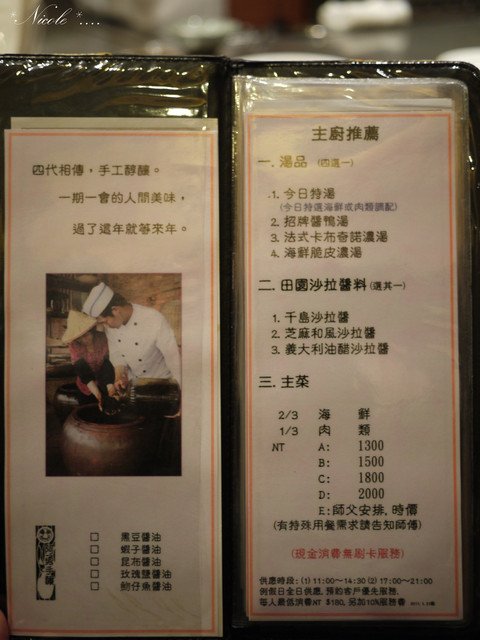 *Nicole*....
四代相傳，手工醇釀。
一期一會的人間美味，
過了這年就等來年。
□ 黑豆醬油
□ 蝦子醬油
□ 昆布醬油
□ 玫瑰鹽醬油
□ 鮑仔魚醬油
主廚推薦
一. 湯品 (四選一)
1. 今日特湯
(今日特選海鮮或肉類調配)
2. 招牌醬鴨湯
3. 法式卡布奇諾濃湯
4. 海鮮脆皮濃湯
二. 田園沙拉醬料(選其一)
1. 千島沙拉醬
2. 芝麻和風沙拉醬
3. 義大利油醋沙拉醬
三. 主菜
2/3 海 鮮
1/3 肉 類
NT A: 1300
B: 1500
C: 1800
D: 2000
E:師父安排,時價
(有特殊用餐需求請告知師傅)
(現金消費無刷卡服務)
供應時段: (1) 11:00～14:30 (2) 17:00～21:00
例假日全日供應,預約客戶優先服務.
每人最低消費NT $180, 另加10%服務費